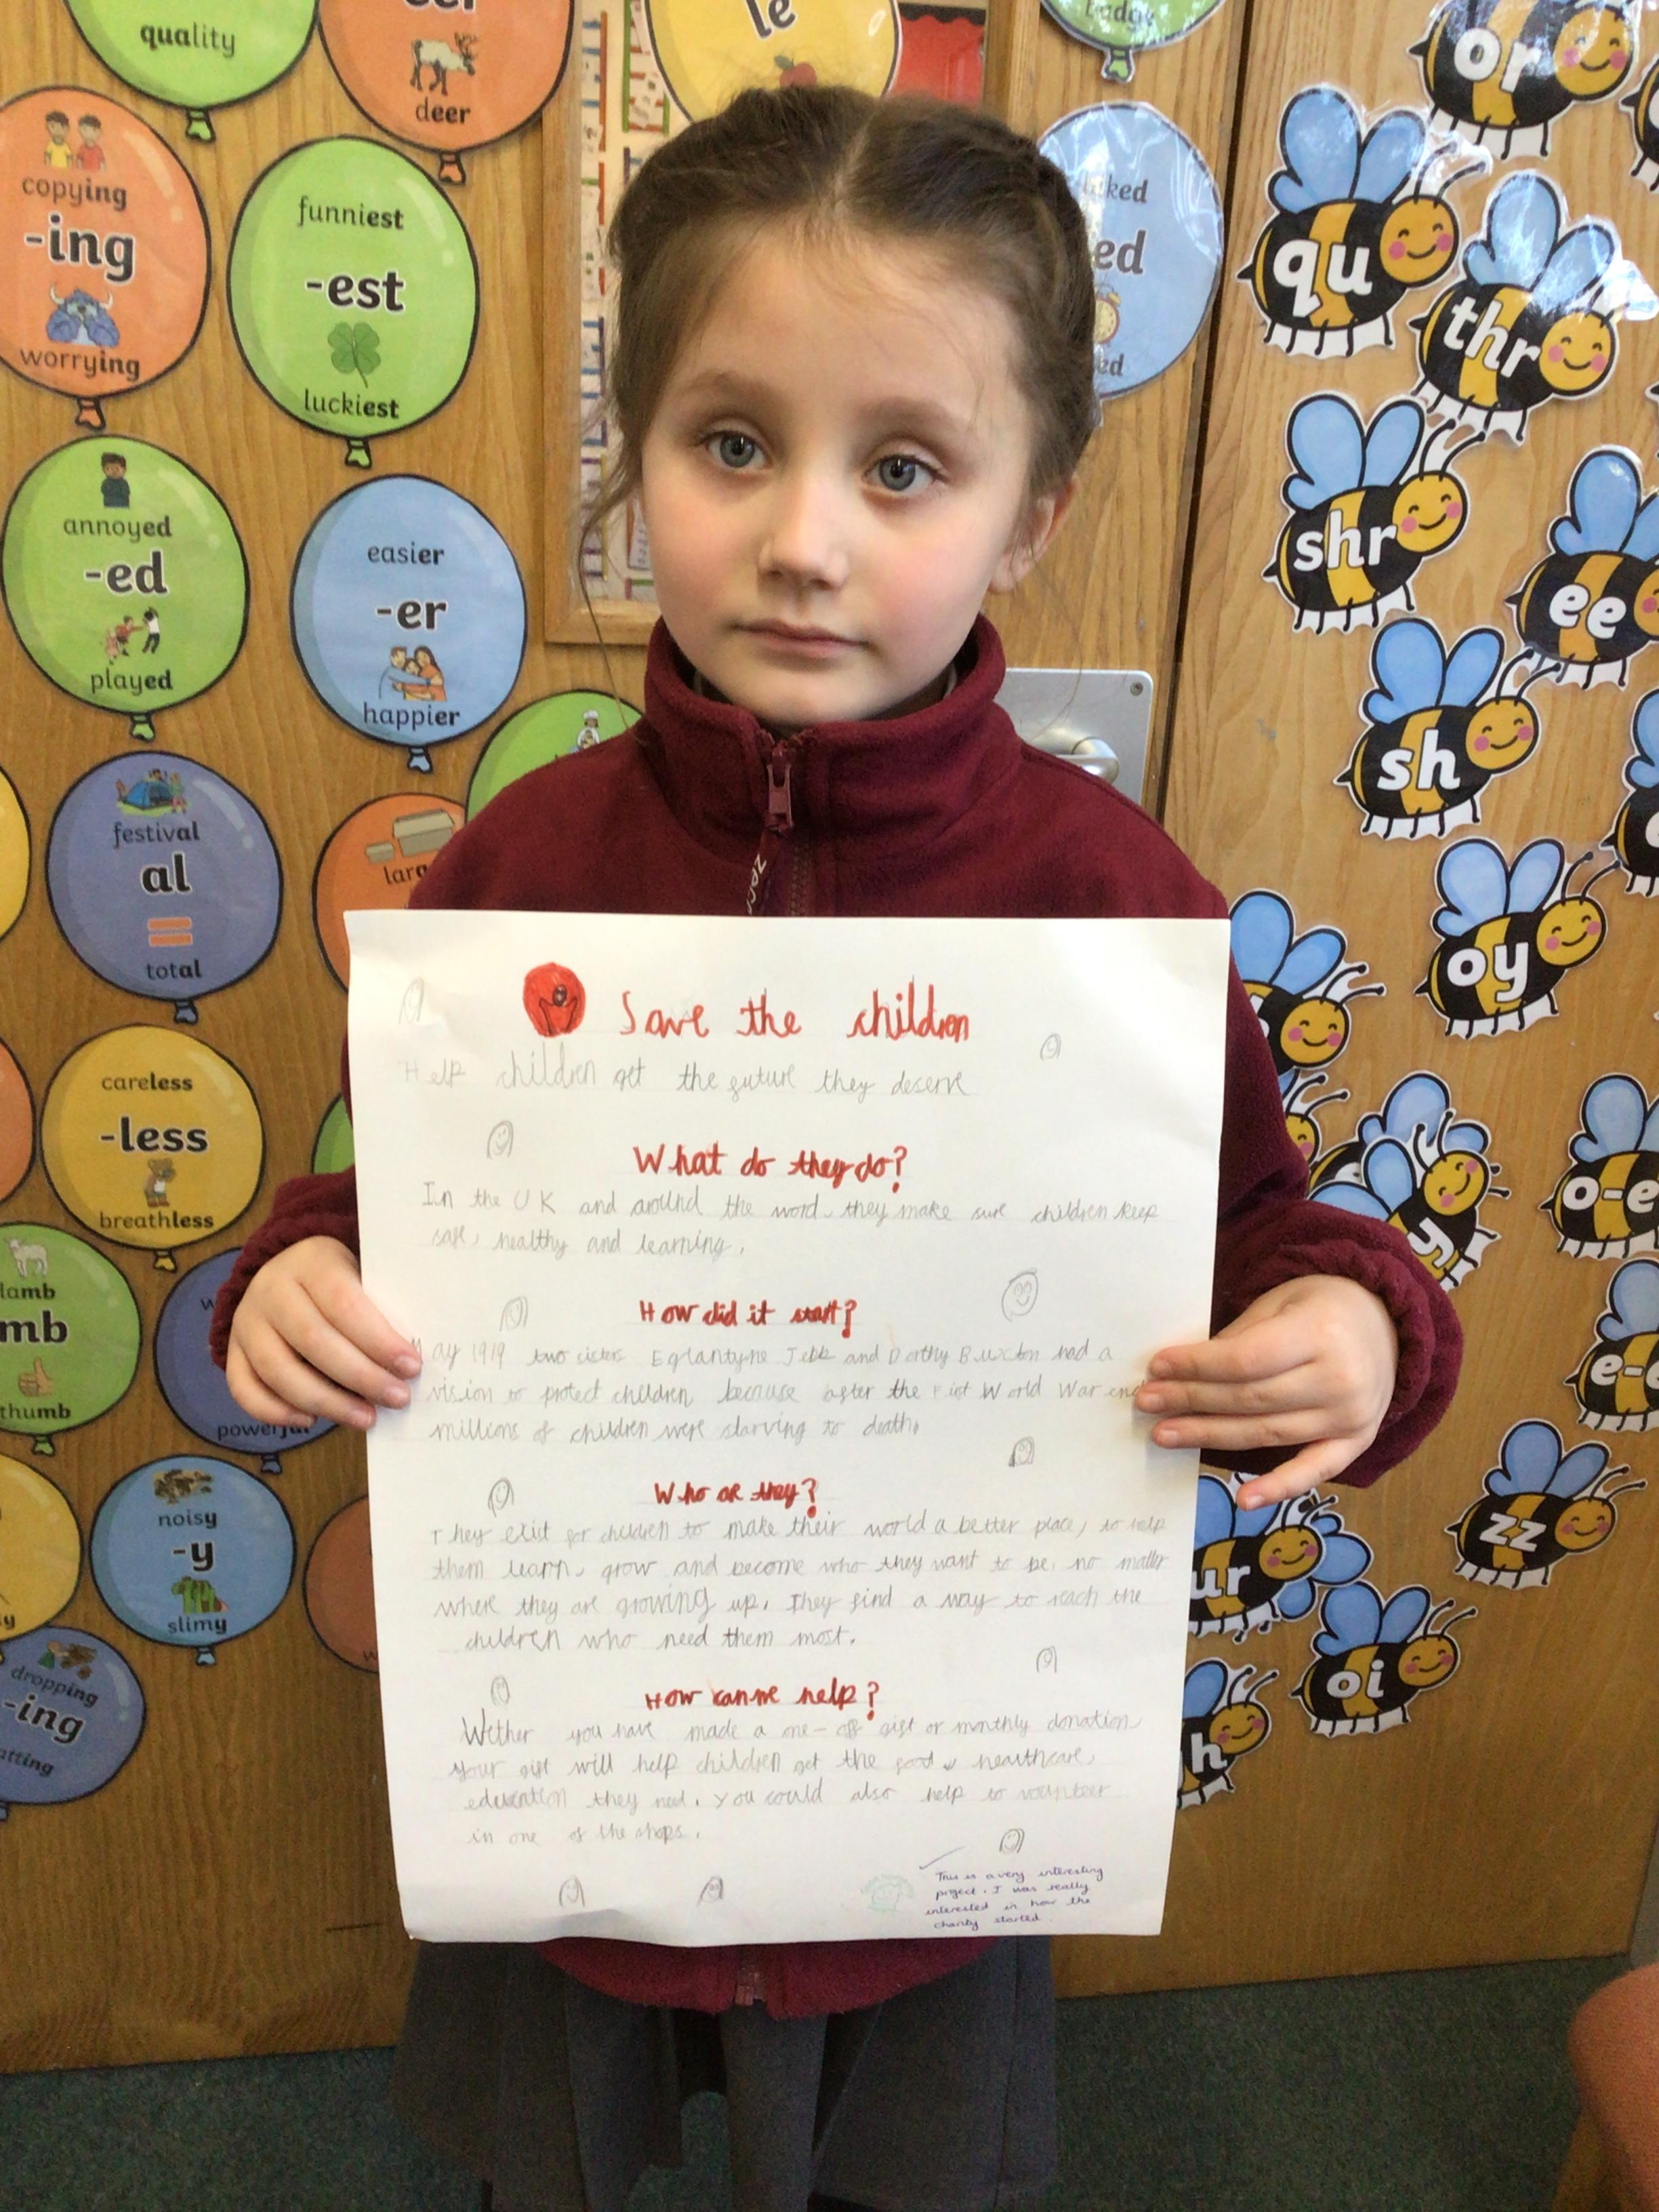 quality
deer
le
badge
or
copying
-ing
worrying
funniest
-est
luckiest
ed
qu
thr
annoyed
-ed
played
easier
-er
happier
shr
ee
sh
festival
al
=
total
larg
oy
careless
-less
breathless
o-e
lamb
mb
thumb
powerful
e-e
noisy
-y
slimy
zz
ur
oi
dropping
-ing
h
Save the children
Help children get the future they deserve
What do they do?
In the UK and around the word, they make sure children keep
safe, healthy and learning.
How did it start?
May 1919 two sisters Eglantyne Jebb and Dorthy Buxton had a
vision to protect children because after the First World War end
millions of children were starving to death.
Who ar they?
They exist for children to make their world a better place, to help
them learn, grow and become who they want to be, no matter
where they are growing up. They find a way to reach the
children who need them most.
How can we help?
Wether you have made a one-off gift or monthly donation
your gift will help children get the food, healthcare,
education they need. You could also help to volunteer
in one of the shops.
This is a very interesting
project. I was really
interested in how the
charity started.